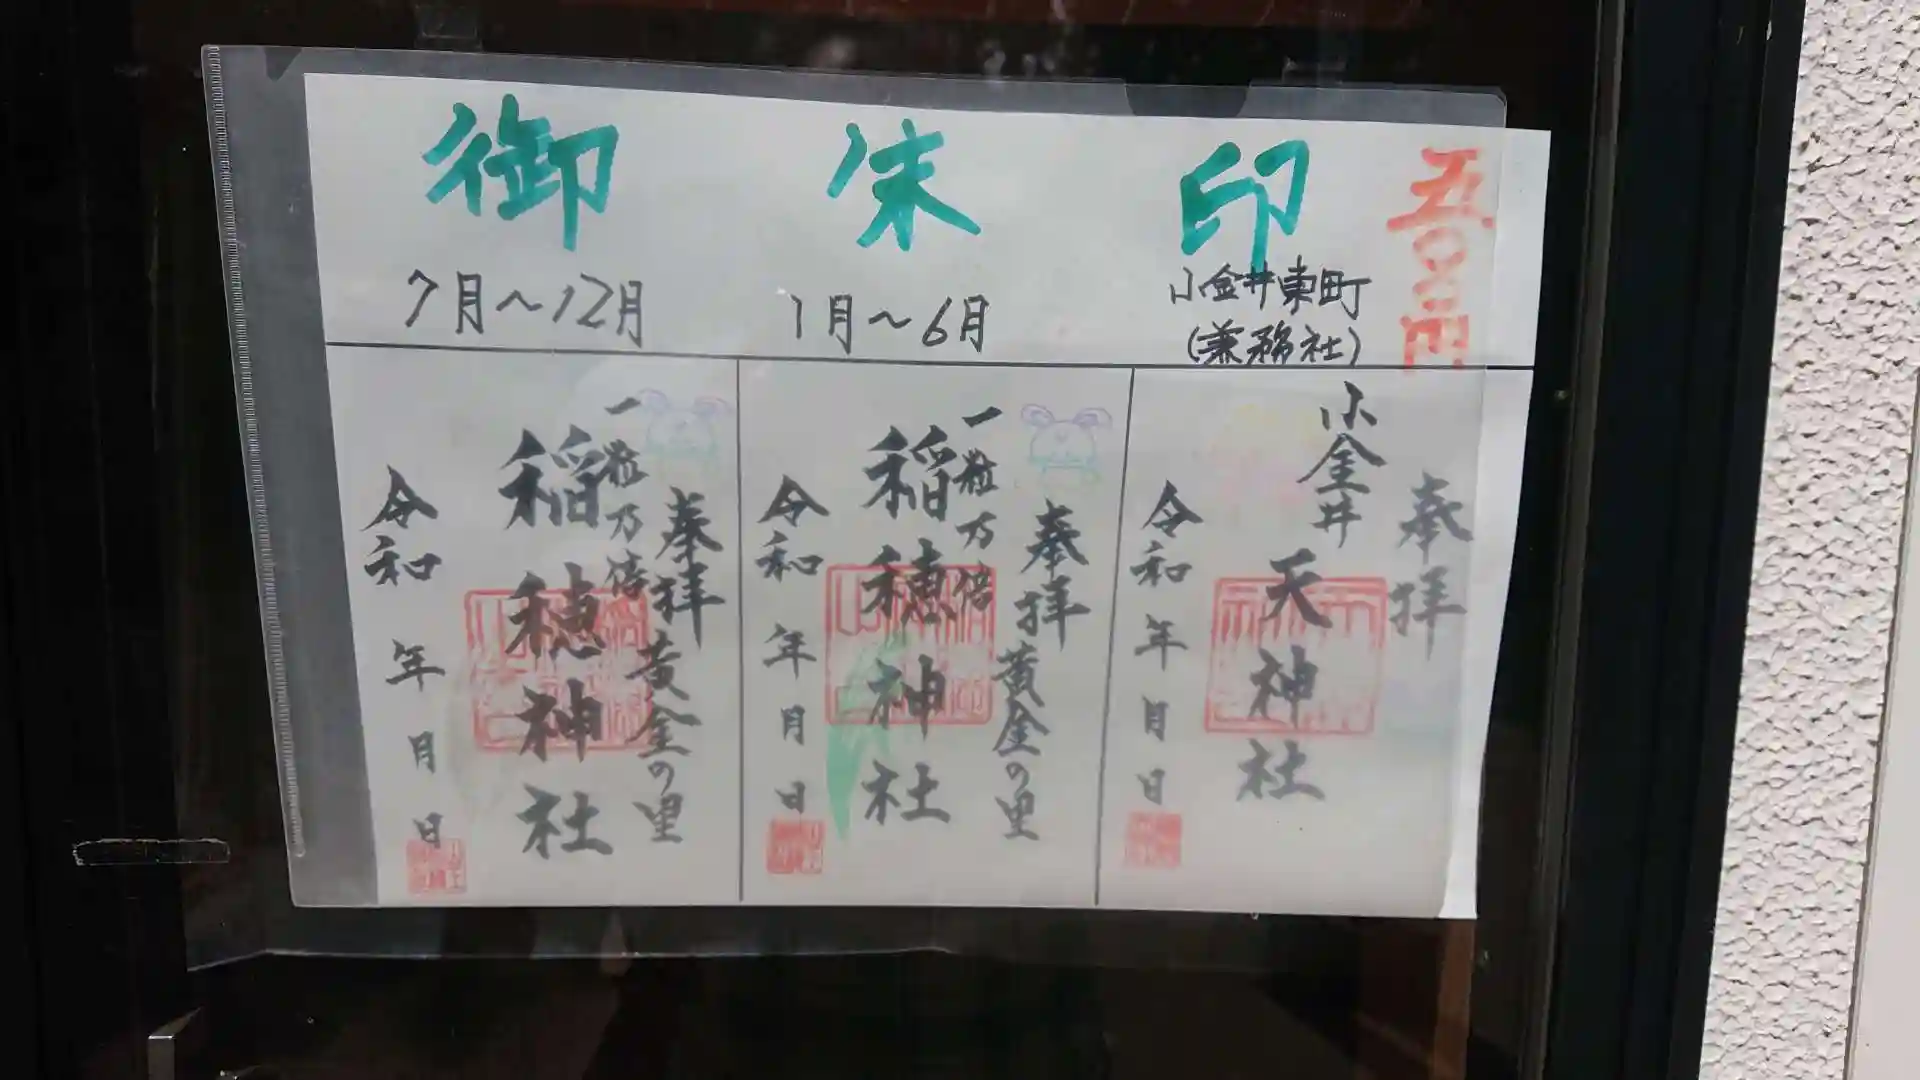 御朱印
五〇〇円
7月～12月
1月～6月
小金井東町
(兼務社)
奉拝
一粒乃万倍 黄金の里
稲穂神社
令和 年 月 日
奉拝
一粒万倍 黄金の里
稲穂神社
令和 年 月 日
奉拝
小金井
天神社
令和 年 月 日